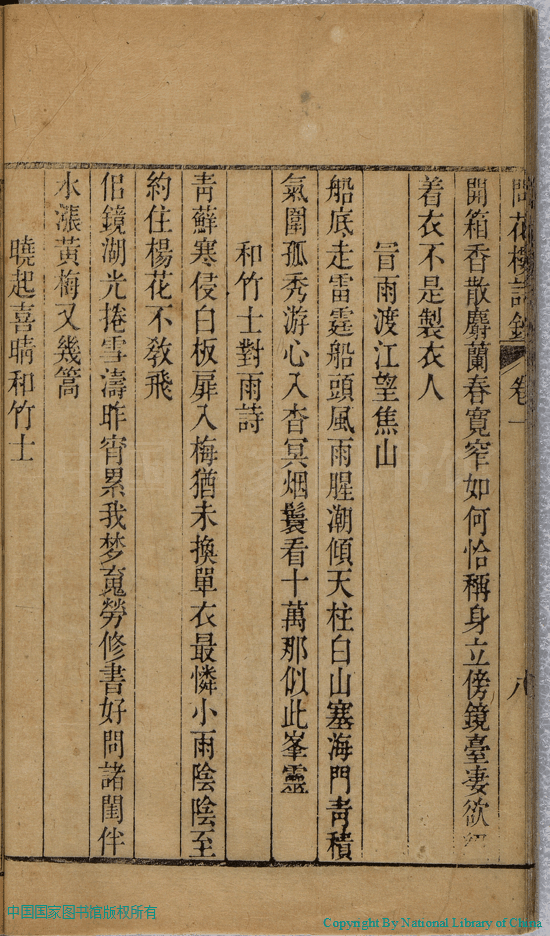 問花樓詩鈔 卷一 八
開箱香散麝蘭春寬窄如何恰稱身立傍鏡臺凄欲
着衣不是製衣人
冒雨渡江望焦山
船底走雷霆船頭風雨腥潮傾天柱白山塞海門青積
氣圍孤秀游心入杳冥烟鬟看十萬那似此峯靈
和竹士對雨詩
青蘚寒侵白板扉入梅猶未換單衣最憐小雨陰陰至
約住楊花不教飛
侶鏡湖光捲雪濤昨宵累我梦寬勞修書好問諸閨伴
水漲黃梅又幾篙
曉起喜晴和竹士
中国国家图书馆版权所有
Copyright By National Library of China